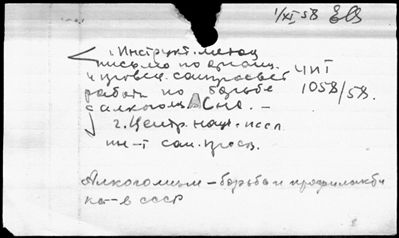 1/XI 58
1. Инструкт. метод
письмо по органи.
и провед. санпросвет
работы по борьбе
с алкоголи
ЧИТ
1058/58.
2. Центр. науч. иссл
ин-т сан. просв.
Алкоголизм – борьба и профилакти
ка – в СССР